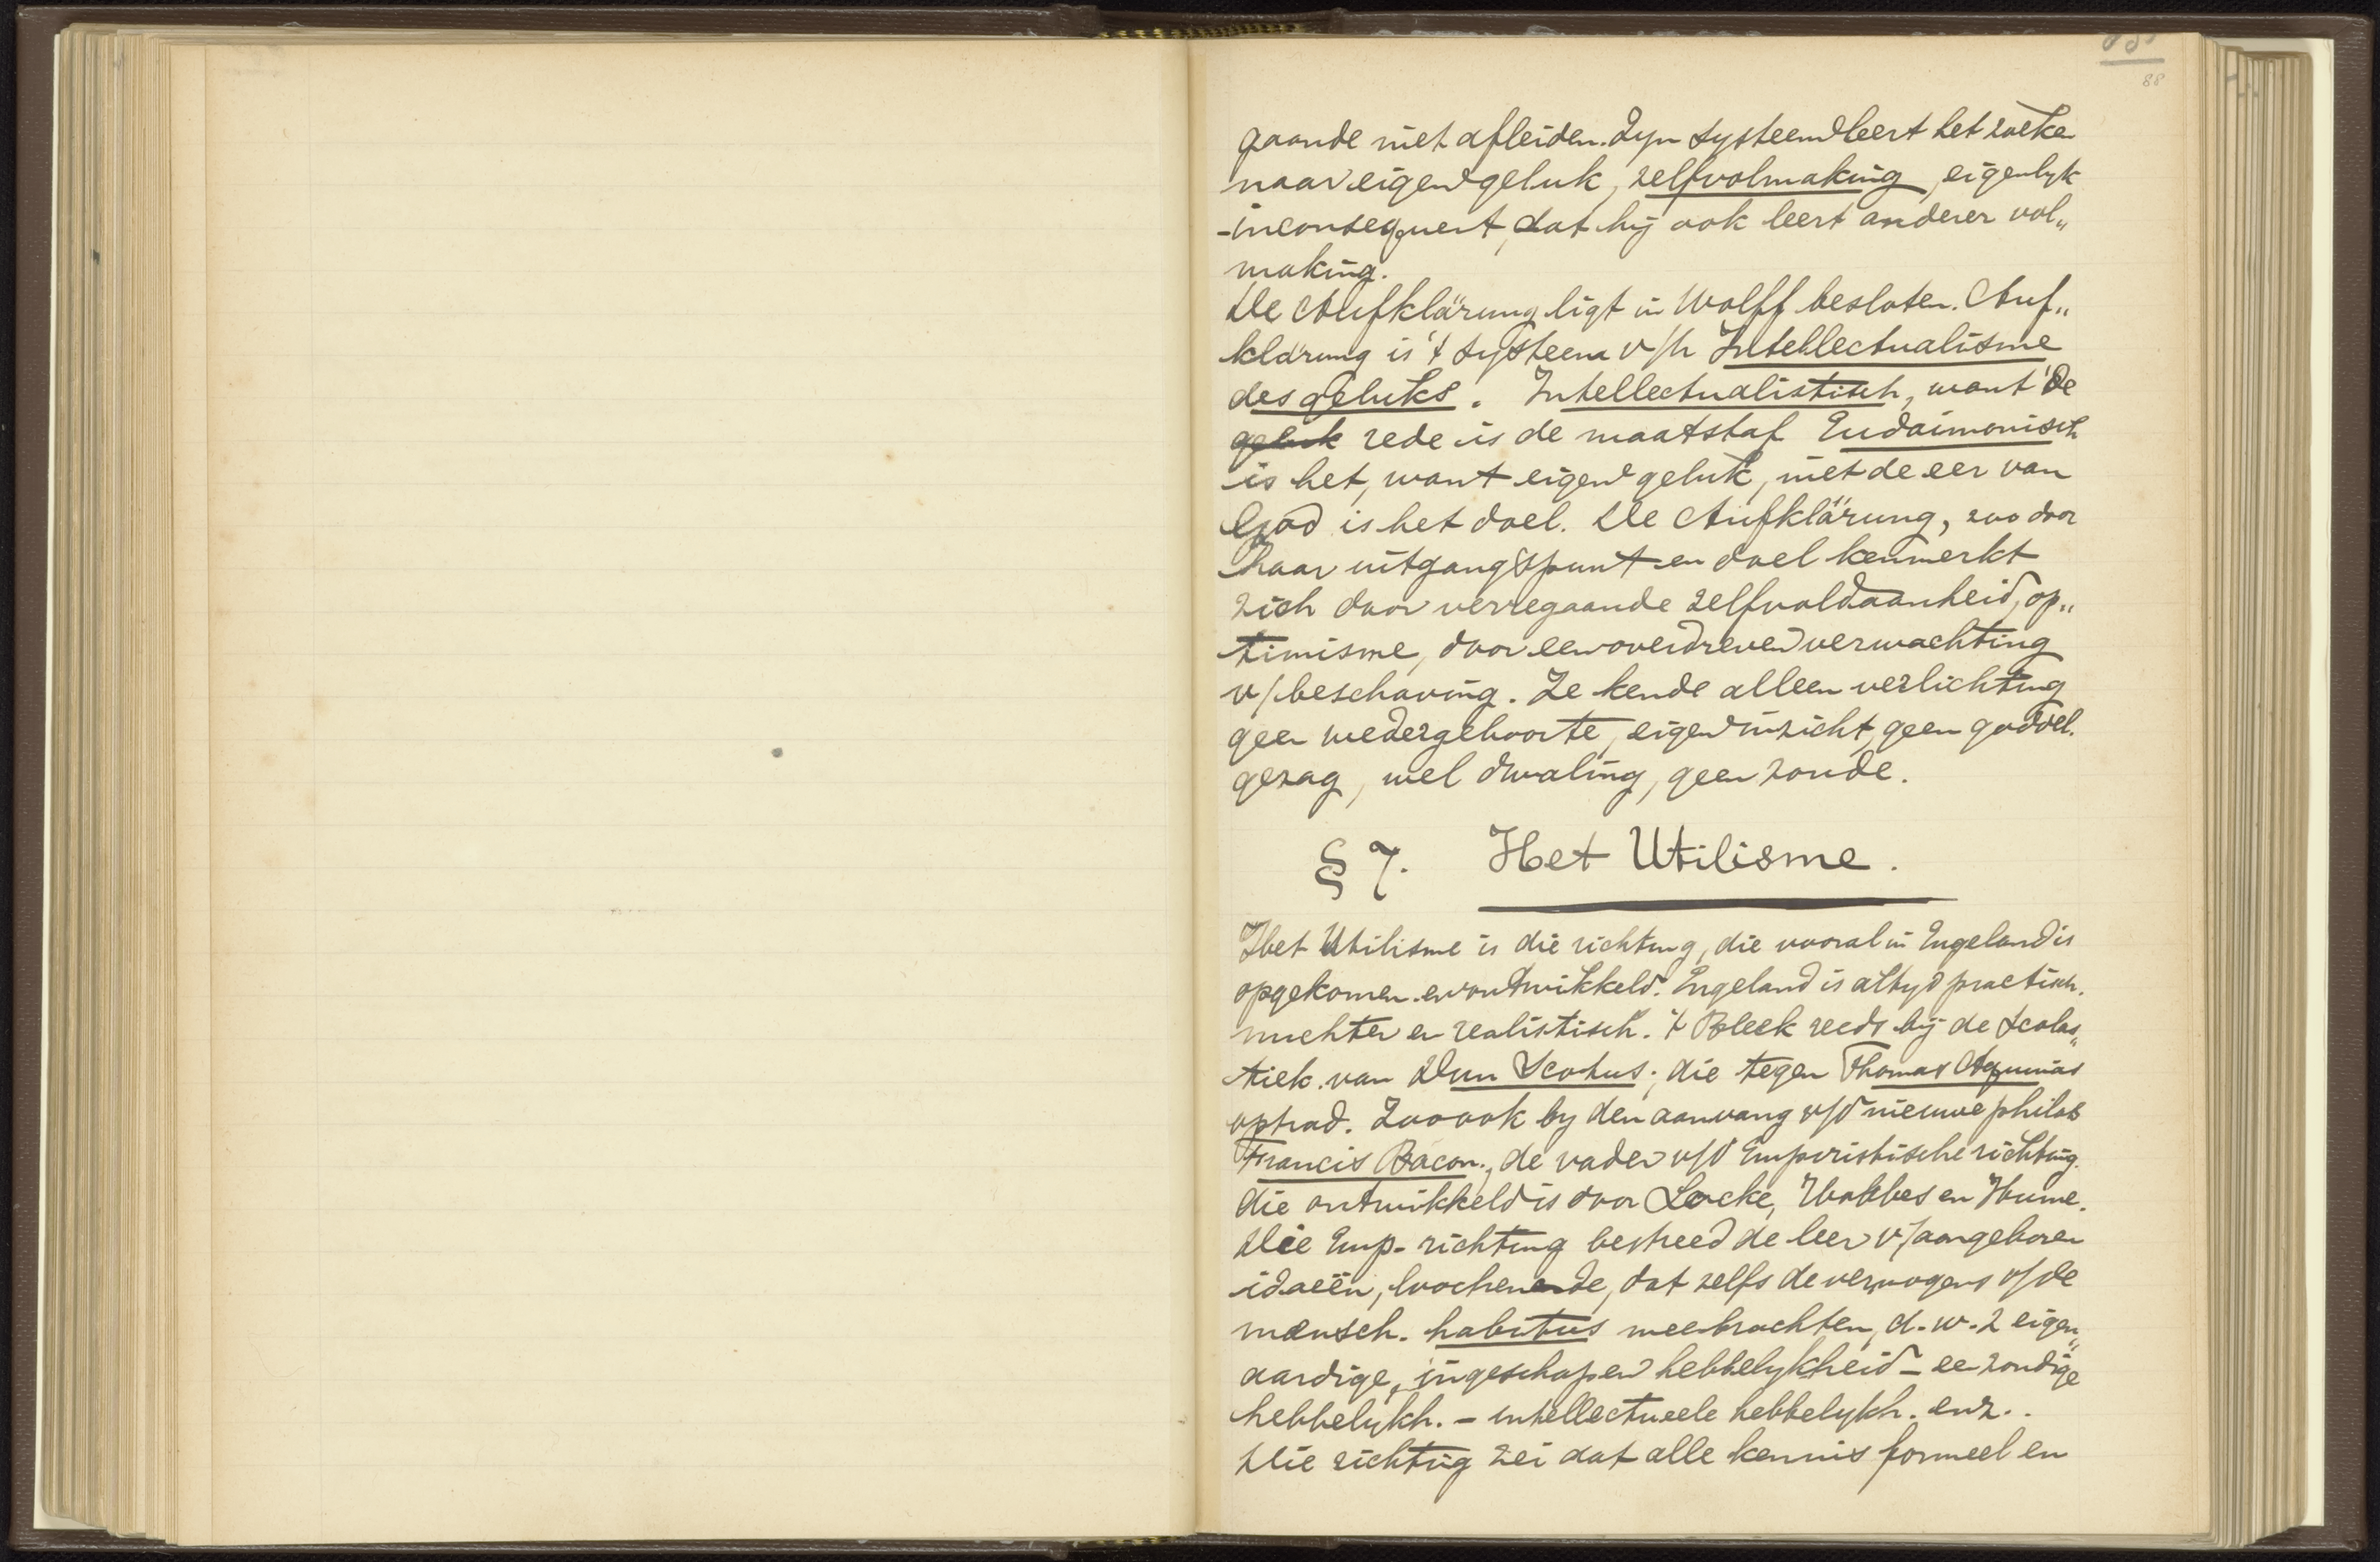 88
gaande niet afleiden. Zyn systeem leert het zoeken
naar eigen geluk, zelfvolmaking, eigenlyk
inconsequent, dat hij ook leert anderer vol„
making.
De Aufklärung ligt in Wolff besloten. Auf„
klärung is 't systeem v/h Intellectualisme
des geluks. Intellectualistisch, want de
geluk rede is de maatstaf Eudaimonisch
is het, want eigen geluk, niet de eer van
God is het doel. De Aufklärung, zoo door
haar uitgangspunt en doel kenmerkt
zich door verregaande zelfvoldaanheid, op„
timisme, door een overdreven verwachting
v/beschaving. Ze kende alleen verlichting
geen wedergeboorte, eigen inzicht, geen goddel.
gezag, wel dwaling, geen zonde.
§ 7. Het Utilisme.
Het Utilisme is die richting, die vooral in Engeland is
opgekomen en ontwikkeld. Engeland is altyd practisch.
nuchter en realistisch. 't Bleek reeds bij de Scolas„
tiek van Dun Scotus; die tegen Thomas Aquinas
optrad. Zoo ook by den aanvang v/d nieuwe philos
Francis Bacon, de vader v/d Empiristische richting.
die ontwikkeld is door Locke, Hobbes en Hume.
Die Emp. richting bestreed de leer v/aangeboren
ideeën, loochenende, dat zelfs de vermogens v/de
mensch. habitus meebrachten, d.w.z eigen„
aardige, ingeschapen hebbelykheid - ee zondige
hebbelykh. - intellectueele hebbelykh. enz..
Die richting zei dat alle kennis formeel en